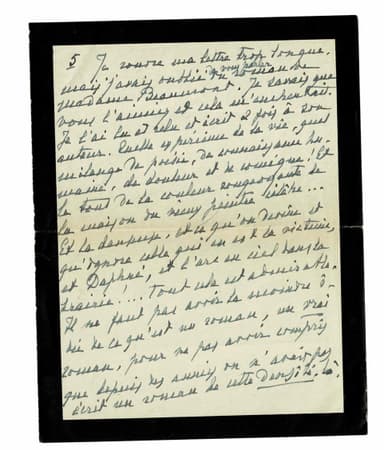 5 Je rouvre ma lettre trop longue,
mais j'avais oublié de vous parler du roman de
madame Beaumont. Je savais que
vous l'aimiez et cela m'enchantait.
Je l'ai lu et relu et écrit 2 fois à son
auteur. Quelle expérience de la vie, quel
mélange de poésie, de connaissance hu-
maine, de douleur et de comique! Et
le tout de la couleur rougeoyante de
la maison du vieux peintre
Et la et ce qu'on devine et
qu'ignore celle qui en est la victime,
et Daphné, et l'arc en ciel dans la
prairie!.... Tout cela est admirable.
Il ne faut pas avoir la moindre i-
dée de ce qu'est un roman, un vrai
roman, pour ne pas avoir compris
que depuis des années on n'avait pas
écrit un roman de cette densité-là.